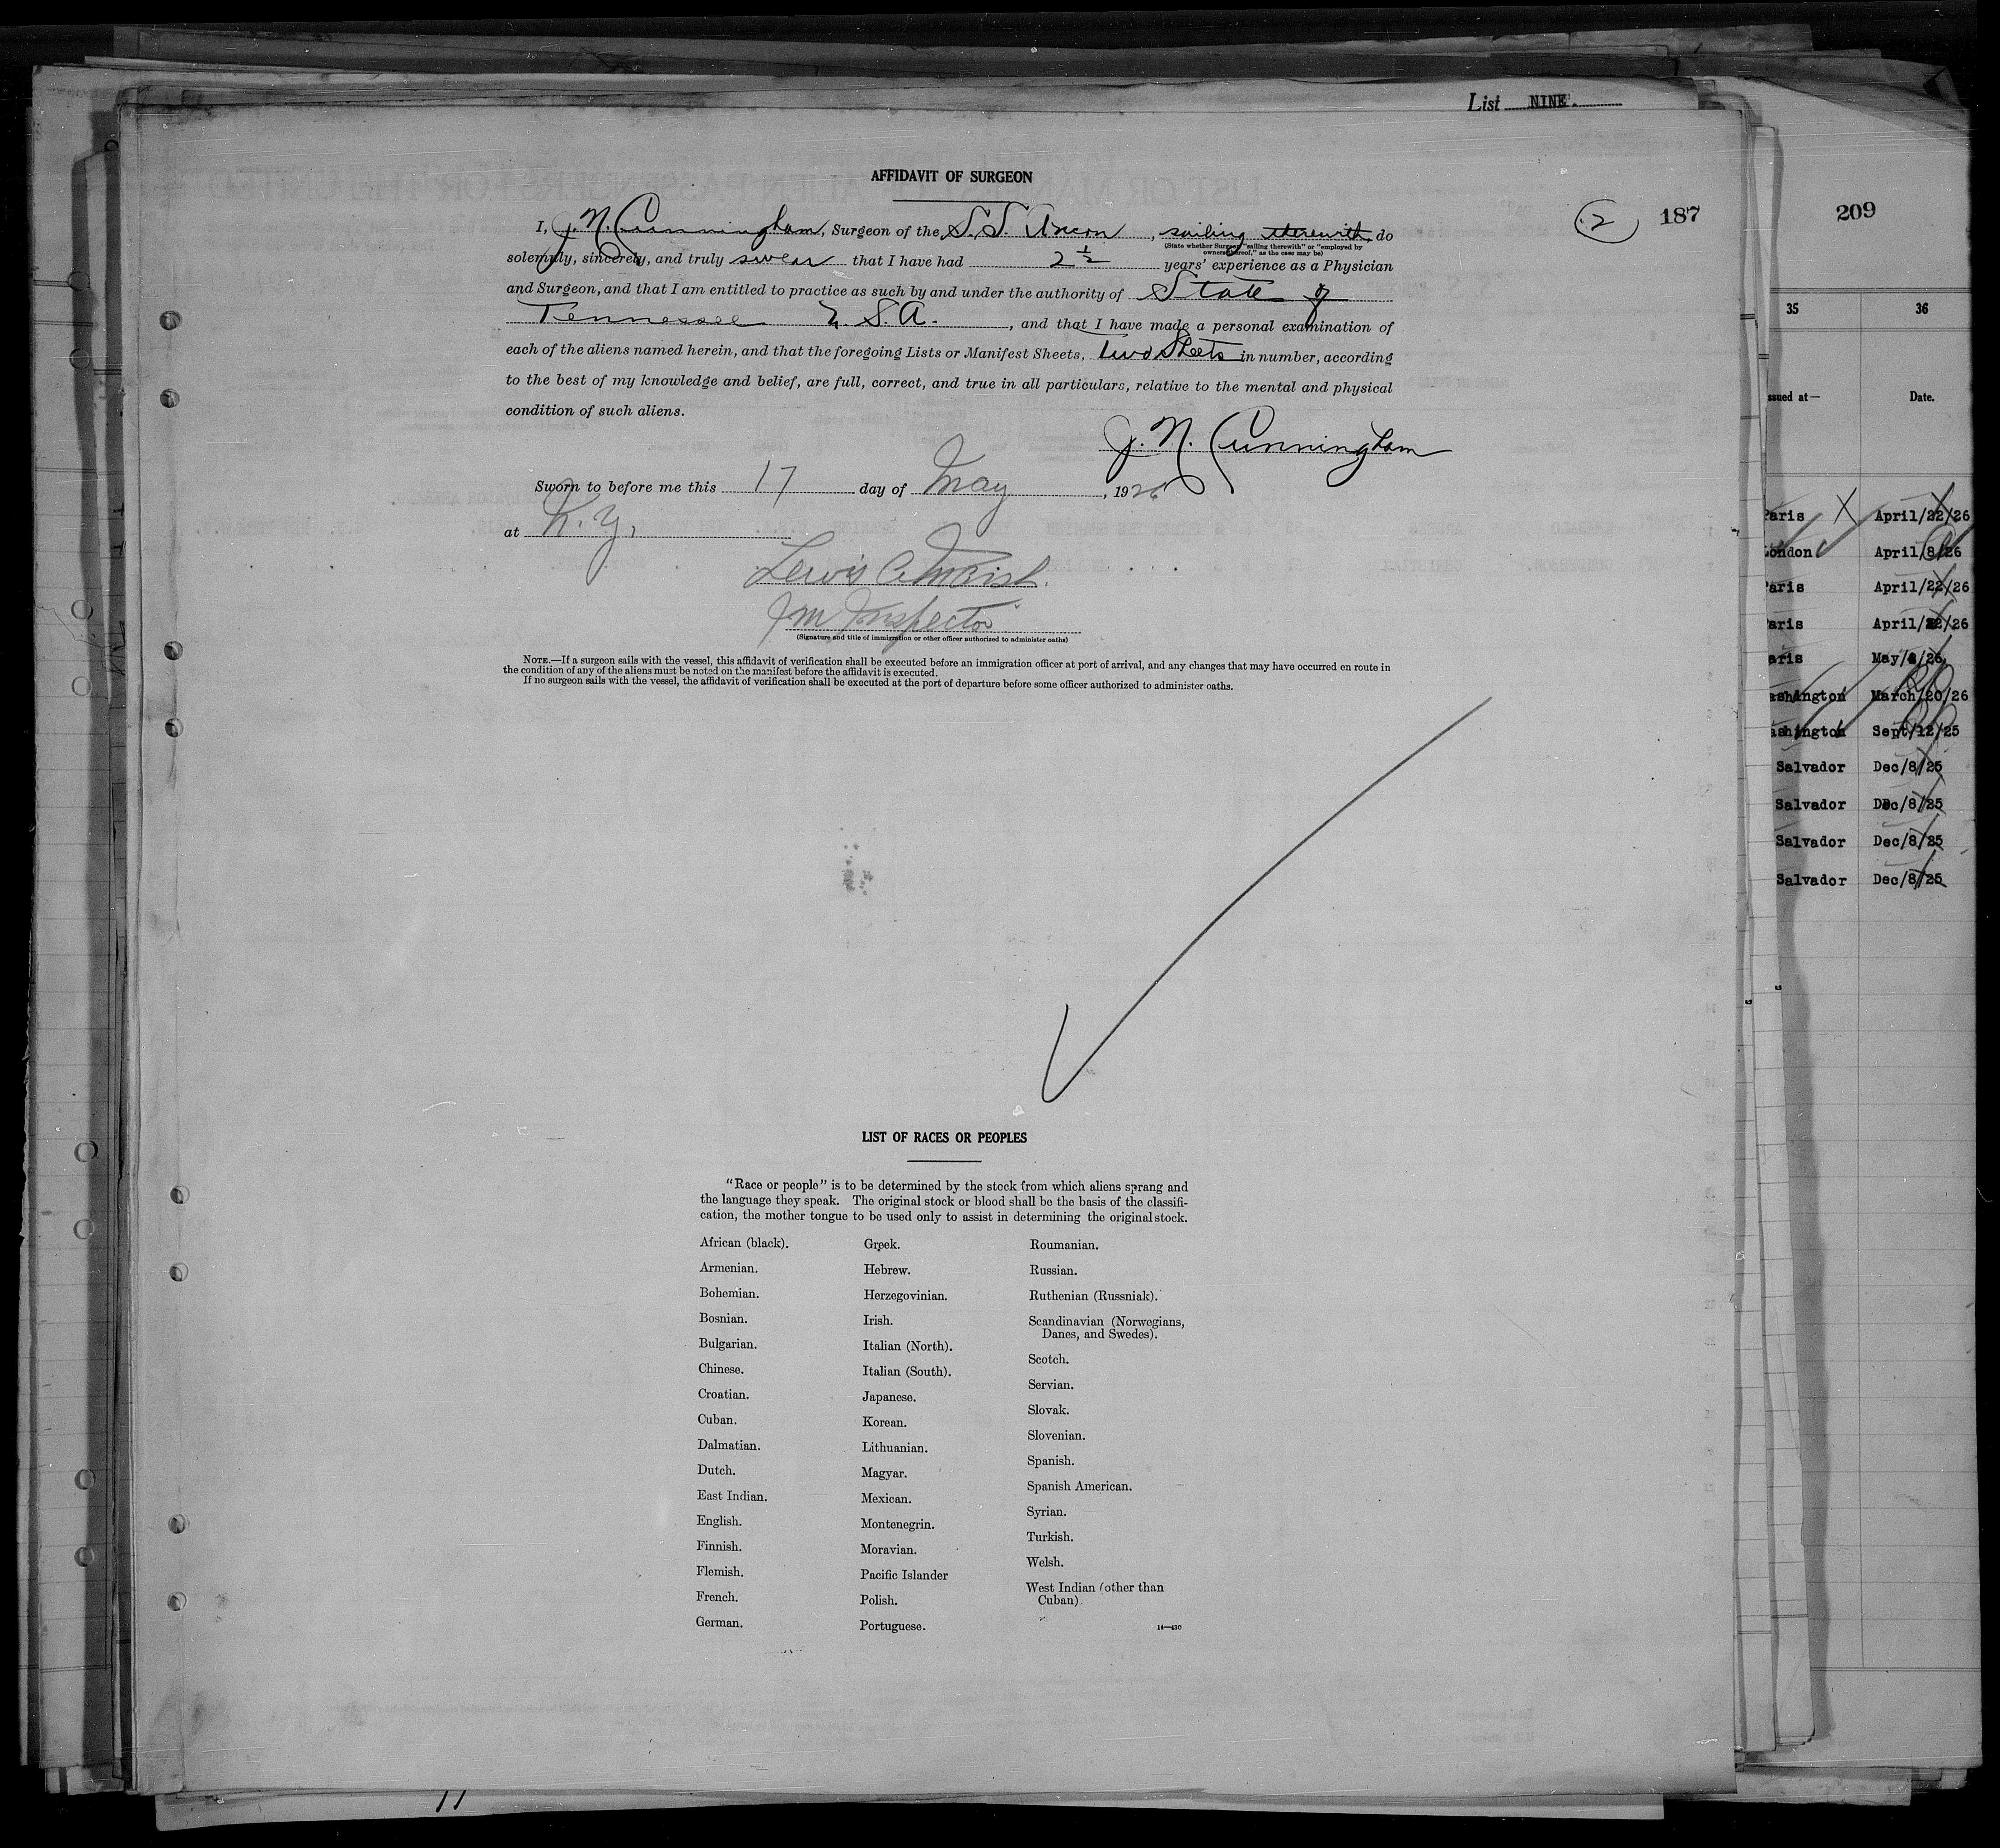 List NINE.
AFFIDAVIT OF SURGEON
(2) 187
209
I, J. N. Cunningham, Surgeon of the S.S. Ancon, sailing therewith, do
(State whether Surgeon "sailing therewith" or "employed by
owners thereof," as the case may be)
solemnly, sincerely, and truly swear that I have had 2 1/2 years' experience as a Physician
and Surgeon, and that I am entitled to practice as such by and under the authority of State of
Tennessee U.S.A., and that I have made a personal examination of
each of the aliens named herein, and that the foregoing Lists or Manifest Sheets, two Sheets in number, according
to the best of my knowledge and belief, are full, correct, and true in all particulars, relative to the mental and physical
condition of such aliens.
J. N. Cunningham
Sworn to before me this 17 day of May, 1926
at N.Y.
Lewis
Im Inspector
(Signature and title of immigration or other officer authorized to administer oaths)
NOTE.—If a surgeon sails with the vessel, this affidavit of verification shall be executed before an immigration officer at port of arrival, and any changes that may have occurred en route in
the condition of any of the aliens must be noted on the manifest before the affidavit is executed.
If no surgeon sails with the vessel, the affidavit of verification shall be executed at the port of departure before some officer authorized to administer oaths.
LIST OF RACES OR PEOPLES
"Race or people" is to be determined by the stock from which aliens sprang and
the language they speak. The original stock or blood shall be the basis of the classifi-
cation, the mother tongue to be used only to assist in determining the original stock.
African (black).
Armenian.
Bohemian.
Bosnian.
Bulgarian.
Chinese.
Croatian.
Cuban.
Dalmatian.
Dutch.
East Indian.
English.
Finnish.
Flemish.
French.
German.
Greek.
Hebrew.
Herzegovinian.
Irish.
Italian (North).
Italian (South).
Japanese.
Korean.
Lithuanian.
Magyar.
Mexican.
Montenegrin.
Moravian.
Pacific Islander
Polish.
Portuguese.
Roumanian.
Russian.
Ruthenian (Russniak).
Scandinavian (Norwegians,
Danes, and Swedes).
Scotch.
Servian.
Slovak.
Slovenian.
Spanish.
Spanish American.
Syrian.
Turkish.
Welsh.
West Indian (other than
Cuban)
14—430
35 36
ssued at— Date.
Paris April/22/26
London April/8/26
Paris April/22/26
Paris April/22/26
aris May/ /26
ashington March/20/26
ashington Sept/12/25
Salvador Dec/8/25
Salvador Dec/8/25
Salvador Dec/8/25
Salvador Dec/8/25